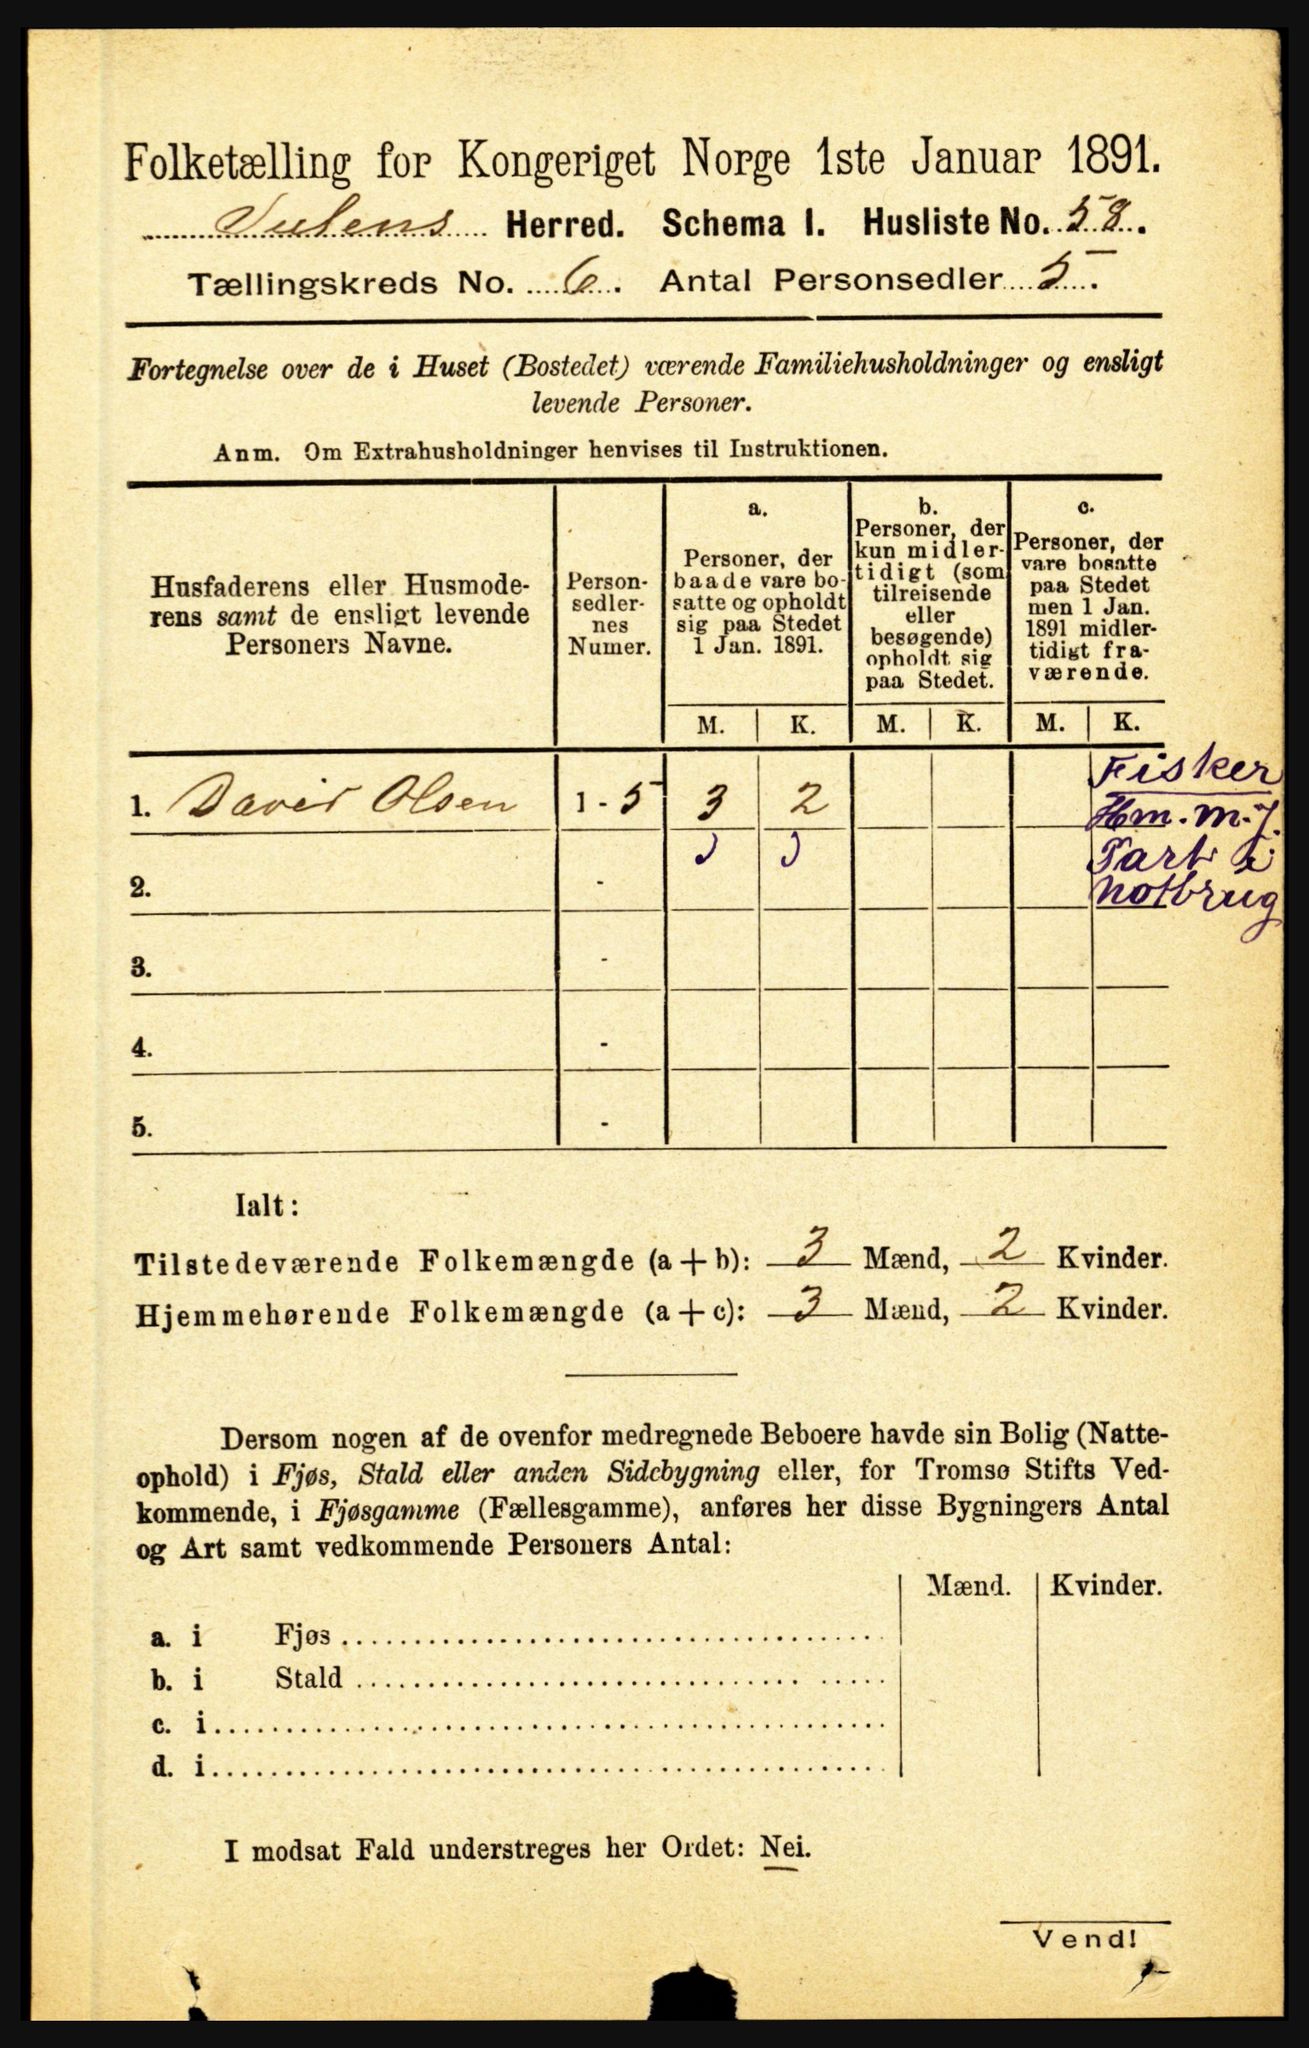 Folketælling for Kongeriget Norge 1ste Januar 1891.
Herred. Schema I. Husliste No. 58.
Tællingskreds No. 6. Antal Personsedler 5.
Fortegnelse over de i Huset (Bostedet) værende Familiehusholdninger og ensligt
levende Personer.
Anm. Om Extrahusholdninger henvises til Instruktionen.
Husfaderens eller Husmode-
rens samt de ensligt levende
Personers Navne.
Person-
sedler-
nes
Numer.
a.
Personer, der
baade vare bo-
satte og opholdt
sig paa Stedet
1 Jan. 1891.
b.
Personer, der
kun midler-
tidigt (som
tilreisende
eller
besøgende)
opholdt sig
paa Stedet.
c.
Personer, der
vare bosatte
paa Stedet
men 1 Jan.
1891 midler-
tidigt fra-
værende.
M. K. M. K. M. K.
Fisker
1. David Olsen 1 - 5 3 2
Hm. m. J.
Part i
Notbrug
2. -
3. -
4. -
5. -
Ialt:
Tilstedeværende Folkemængde (a + b): 3 Mænd, 2 Kvinder.
Hjemmehørende Folkemængde (a + c): 3 Mænd, 2 Kvinder.
Dersom nogen af de ovenfor medregnede Beboere havde sin Bolig (Natte-
ophold) i Fjøs, Stald eller anden Sidebygning eller, for Tromsø Stifts Ved-
kommende, i Fjøsgamme (Fællesgamme), anføres her disse Bygningers Antal
og Art samt vedkommende Personers Antal:
Mænd. Kvinder.
a. i Fjøs
b. i Stald
c. i
d. i
I modsat Fald understreges her Ordet: Nei.
Vend!